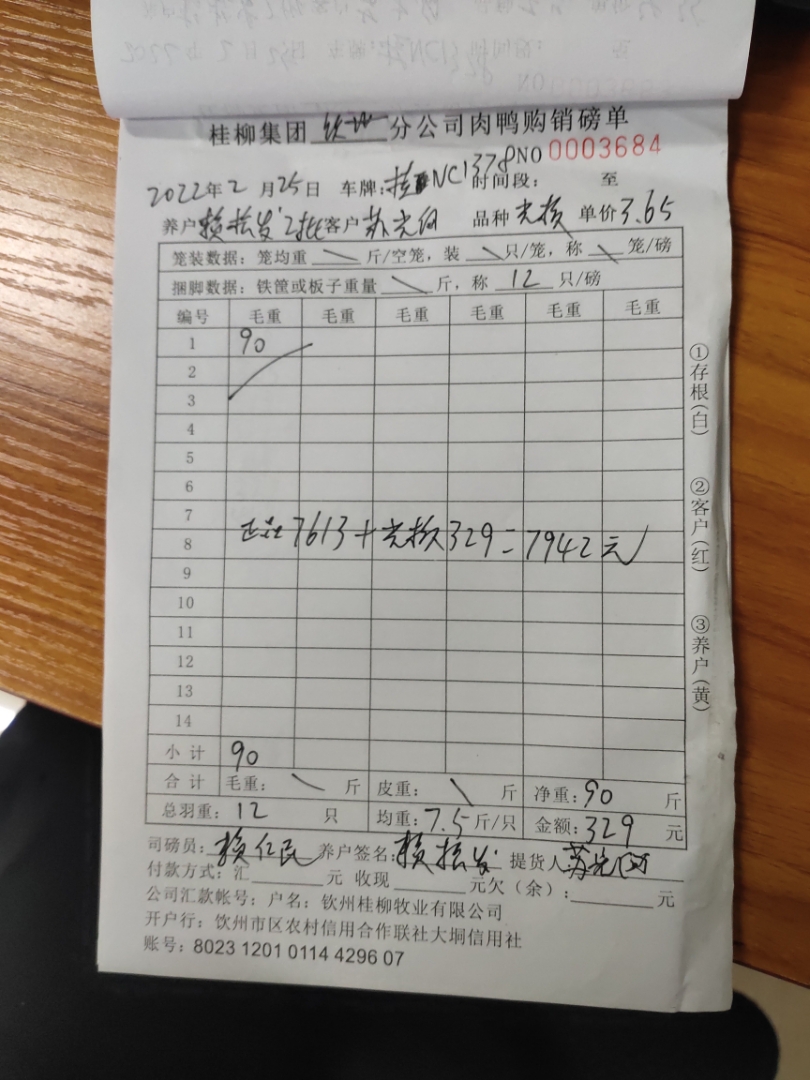 桂柳集团 钦州 分公司肉鸭购销磅单
NO 0003684
2022年2月25日 车牌:桂NC1378 时间段: 至
养户 赖振发 2批 客户 苏光 品种 光核 单价3.65
笼装数据: 笼均重 \ 斤/空笼, 装 \ 只/笼, 称 \ 笼/磅
捆脚数据: 铁筐或板子重量 \ 斤, 称 12 只/磅
编号 毛重 毛重 毛重 毛重 毛重 毛重
1 90
2
3
4
5
6
7
8
7613+光核329=7942元
9
10
11
12
13
14
小计 90
合计 毛重: \ 斤 皮重: \ 斤 净重:90 斤
总羽重: 12 只 均重:7.5斤/只 金额:329 元
司磅员: 赖仁民 养户签名: 赖振发 提货人 苏光
付款方式: 汇 元 收现 元欠(余): 元
公司汇款帐号: 户名: 钦州桂柳牧业有限公司
开户行: 钦州市区农村信用合作联社大垌信用社
账号: 8023 1201 0114 4296 07
①存根(白)
②客户(红)
③养户(黄)